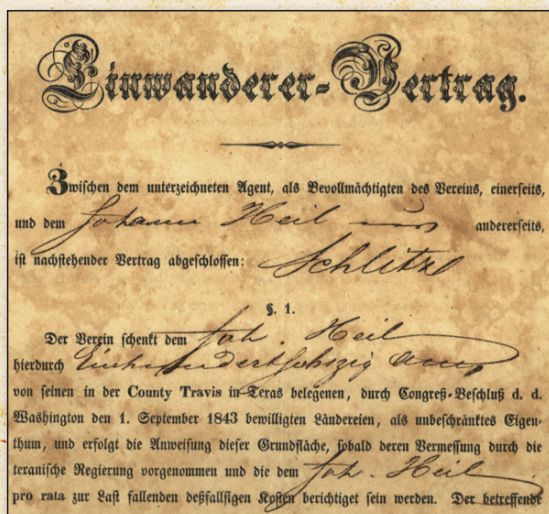 Einwanderer-Vertrag.
Zwischen dem unterzeichneten Agent, als Bevollmächtigten des Vereins, einerseits,
und dem Johann Heil aus andererseits,
ist nachstehender Vertrag abgeschlossen: Schlitz
§. 1.
Der Verein schenkt dem Joh. Heil
hierdurch Einhundertsechszig
von seinen in der County Travis in Texas belegenen, durch Congreß-Beschluß d. d.
Washington den 1. September 1843 bewilligten Ländereien, als unbeschränktes Eigen-
thum, und erfolgt die Anweisung dieser Grundfläche, sobald deren Vermessung durch die
texanische Regierung vorgenommen und die dem Joh. Heil
pro rata zur Last fallenden deßfallsigen Kosten berichtiget sein werden. Der betreffende